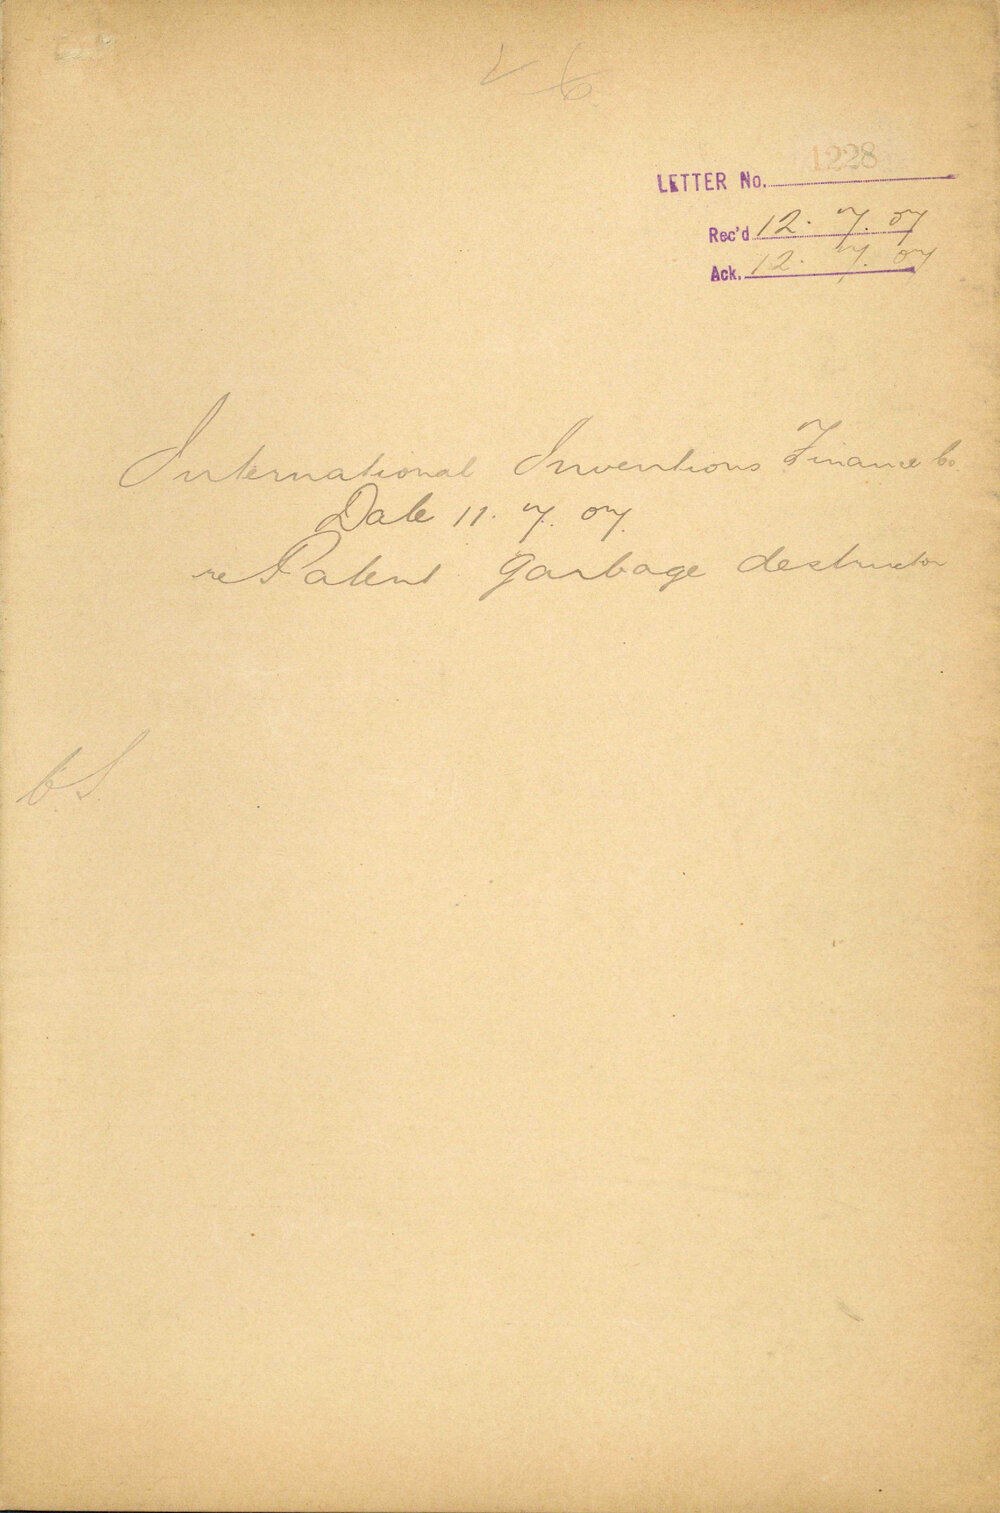 1228
LETTER No.
Rec'd 12. 7. 07
Ack. 12. 7. 07
International Inventions Finance Co.
Date 11. 7. 07
re Patent garbage destructor